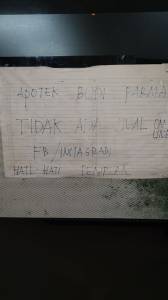 APOTEK BUDI FARMA
TIDAK ADA JUAL ON LINE
FB / INSTAGRAM
HATI HATI PENIPUAN